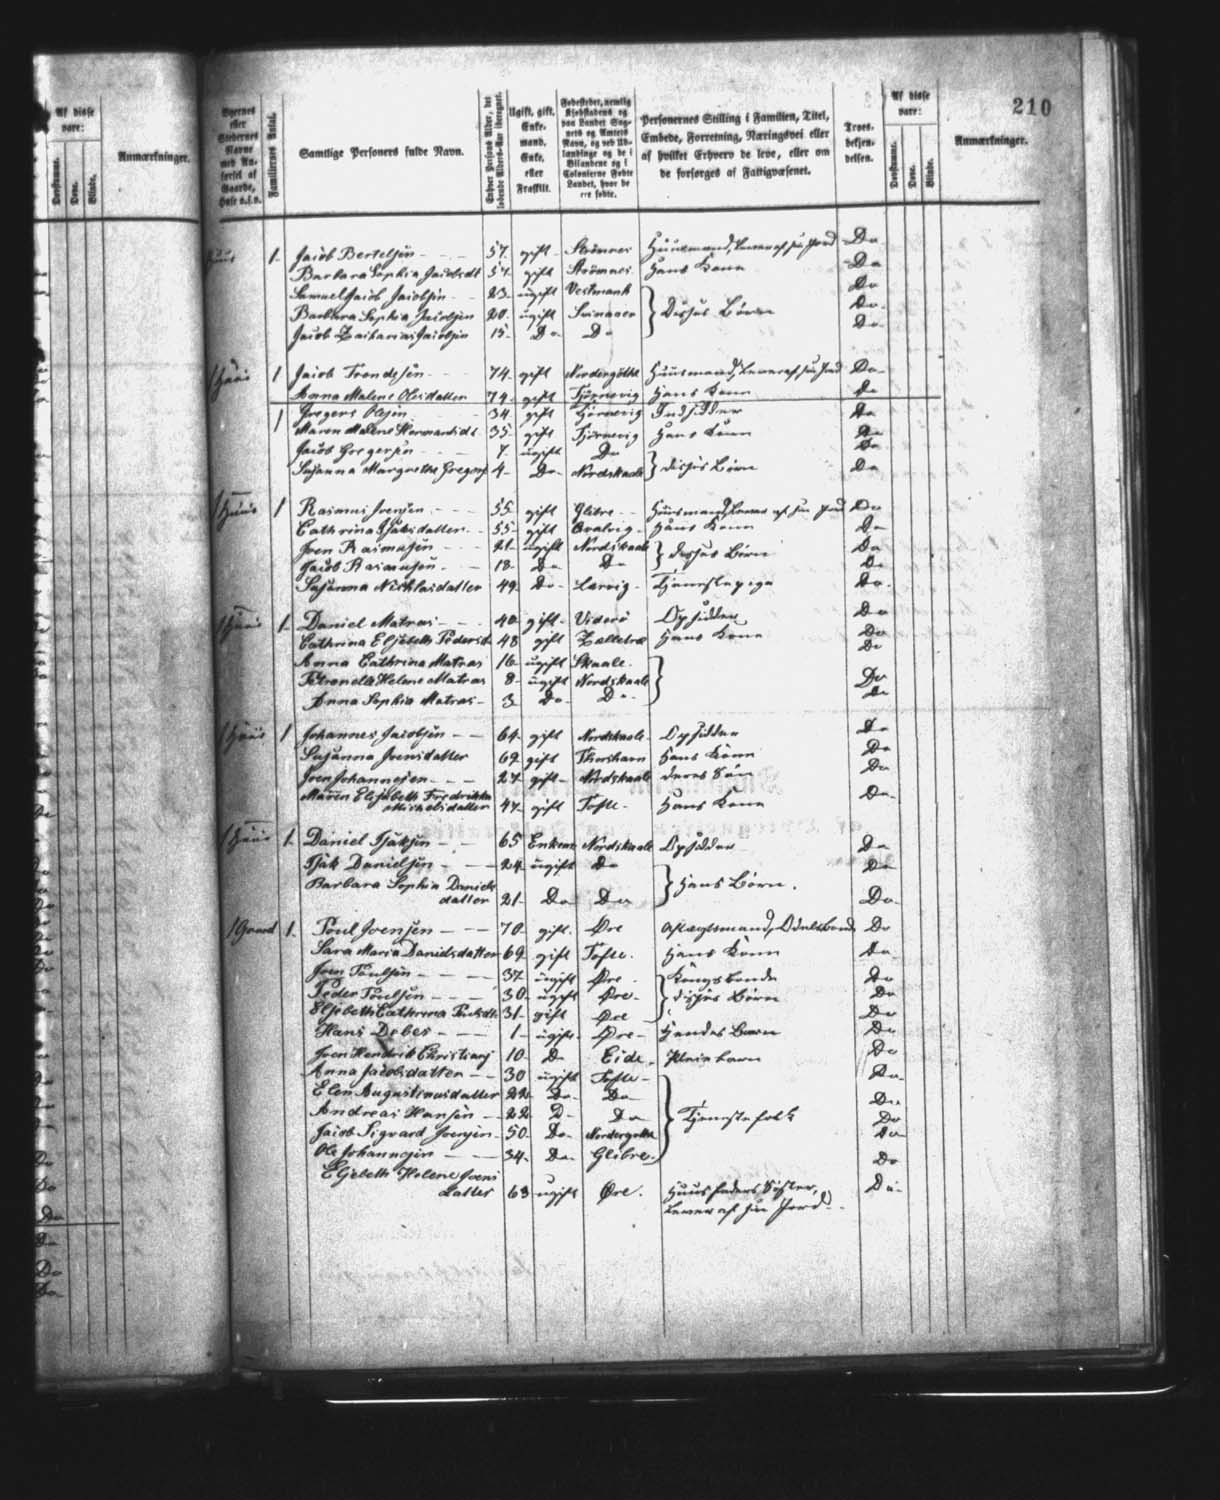 210
Af disse være:
Anmærkninger.
Døvstumme.
Døve.
Blinde.
Byernes eller Stedernes Navne med Anførsel af Gaarde, Huse o.s.v.
Familiernes Antal.
Samtlige Personers fulde Navn.
Enhver Persons Alder, det løbende Alders-Aar iberegnet.
Ugift, gift, Enkemand, Enke, eller Fraskilt.
Fødestedet, nemlig Kjøbstadens og paa Landet Sognets og Amtets Navn, og ved Udlændinge og de i Bilandene og i Colonierne Fødte Landet, hvor de ere fødte.
Personernes Stilling i Familien, Titel, Embede, Forretning, Næringsvei eller af hvilket Erhverv de leve, eller om de forsørges af Fattigvæsenet.
Troesbekjendelsen.
Af disse være:
Døvstumme.
Døve.
Blinde.
Anmærkninger.
Huus 1 Jacob Bertelsen 57 gift Strømnes Huusmand, lever af sin Jord Do
Barbara Sophia Jacobsdt 57 gift Strømnes Hans Kone Do
Samuel Jacob Jacobsen 23 ugift Vestmanh Do
Barbara Sophia Jacobsen 20 ugift Svinaaer Disses Børn Do
Jacob Zacharias Jacobsen 15 Do Do Do
1 Huus 1 Jacob Trondsen 74 gift Nordregøthe Huusmand, lever af sin Jord Do
Anna Malene Olesdatter 74 gift Tjørnevig Hans Kone Do
1 Gregers Olesen 34 gift Tjørnevig Indsidder Do
Maren Malene Hermansdt 35 gift Tjørnevig Hans Kone Do
Jacob Gregersen 7 ugift Do Do
Susanna Margrethe Gregers 4 Do Nordskaale disses Børn Do
1 Huus 1 Rasmus Joensen 55 gift Glibre Huusmand, lever af sin Jord Do
Cathrina Tjaksdatter 55 gift Qvalvig Hans Kone Do
Joen Rasmusen 21 ugift Nordskaale disses Børn Do
Jacob Rasmusen 18 Do Do Do
Susanna Nicklasdatter 49 Do Larvig Tjenestepige Do
1 Huus 1 Daniel Matras 40 gift Viderø Opsidder Do
Cathrina Elsebeth Pedersdt 48 gift Zelletræ Hans Kone Do
Anna Cathrina Matras 16 ugift Skaale Do
Petronella Helene Matras 8 ugift Nordskaale Do
Anna Sophia Matras 3 Do Do Do
1 Huus 1 Johannes Jacobsen 64 gift Nordskaale Opsidder Do
Susanna Joensdatter 69 gift Thorshavn Hans Kone Do
Joen Johannesen 27 gift Nordskaale deres Søn Do
Maren Elisabeth Fredrikka
Michelsdatter 47 gift Tofte Hans Kone Do
1 Huus 1 Daniel Tjaksen 65 Enkem Nordskaale Opsidder Do
Tjak Danielsen 24 ugift Do Do
Barbara Sophia Daniels
datter 21 Do Do Hans Børn. Do
1 Gaard 1 Poul Joensen 70 gift Øre Aftægtsmand, Odelsbonde Do
Sara Maria Danielsdatter 69 gift Tofte Hans Kone Do
Joen Poulsen 37 ugift Øre Kongsbonde Do
Peder Poulsen 30 ugift Øre disses Børn Do
Elsebeth Cathrina Poulsdt 31 gift Øre Do
Hans Debes 1 ugift Øre Hendes Barn Do
Joen Hendrik Christians 10 Do Eide Pleiebarn Do
Anna Jacobsdatter 30 ugift Tofte Do
Elen Augustinusdatter 22 Do Do Do
Andreas Hansen 22 D Do Tjenestefolk Do
Jacob Sigvard Joensen 50 Do Nordregøthe Do
Ole Johannesen 34 Do Glibre Do
Elsebeth Helene Joens
datter 63 ugift Øre. Huusfaders Søster, Do
lever af sin Jord